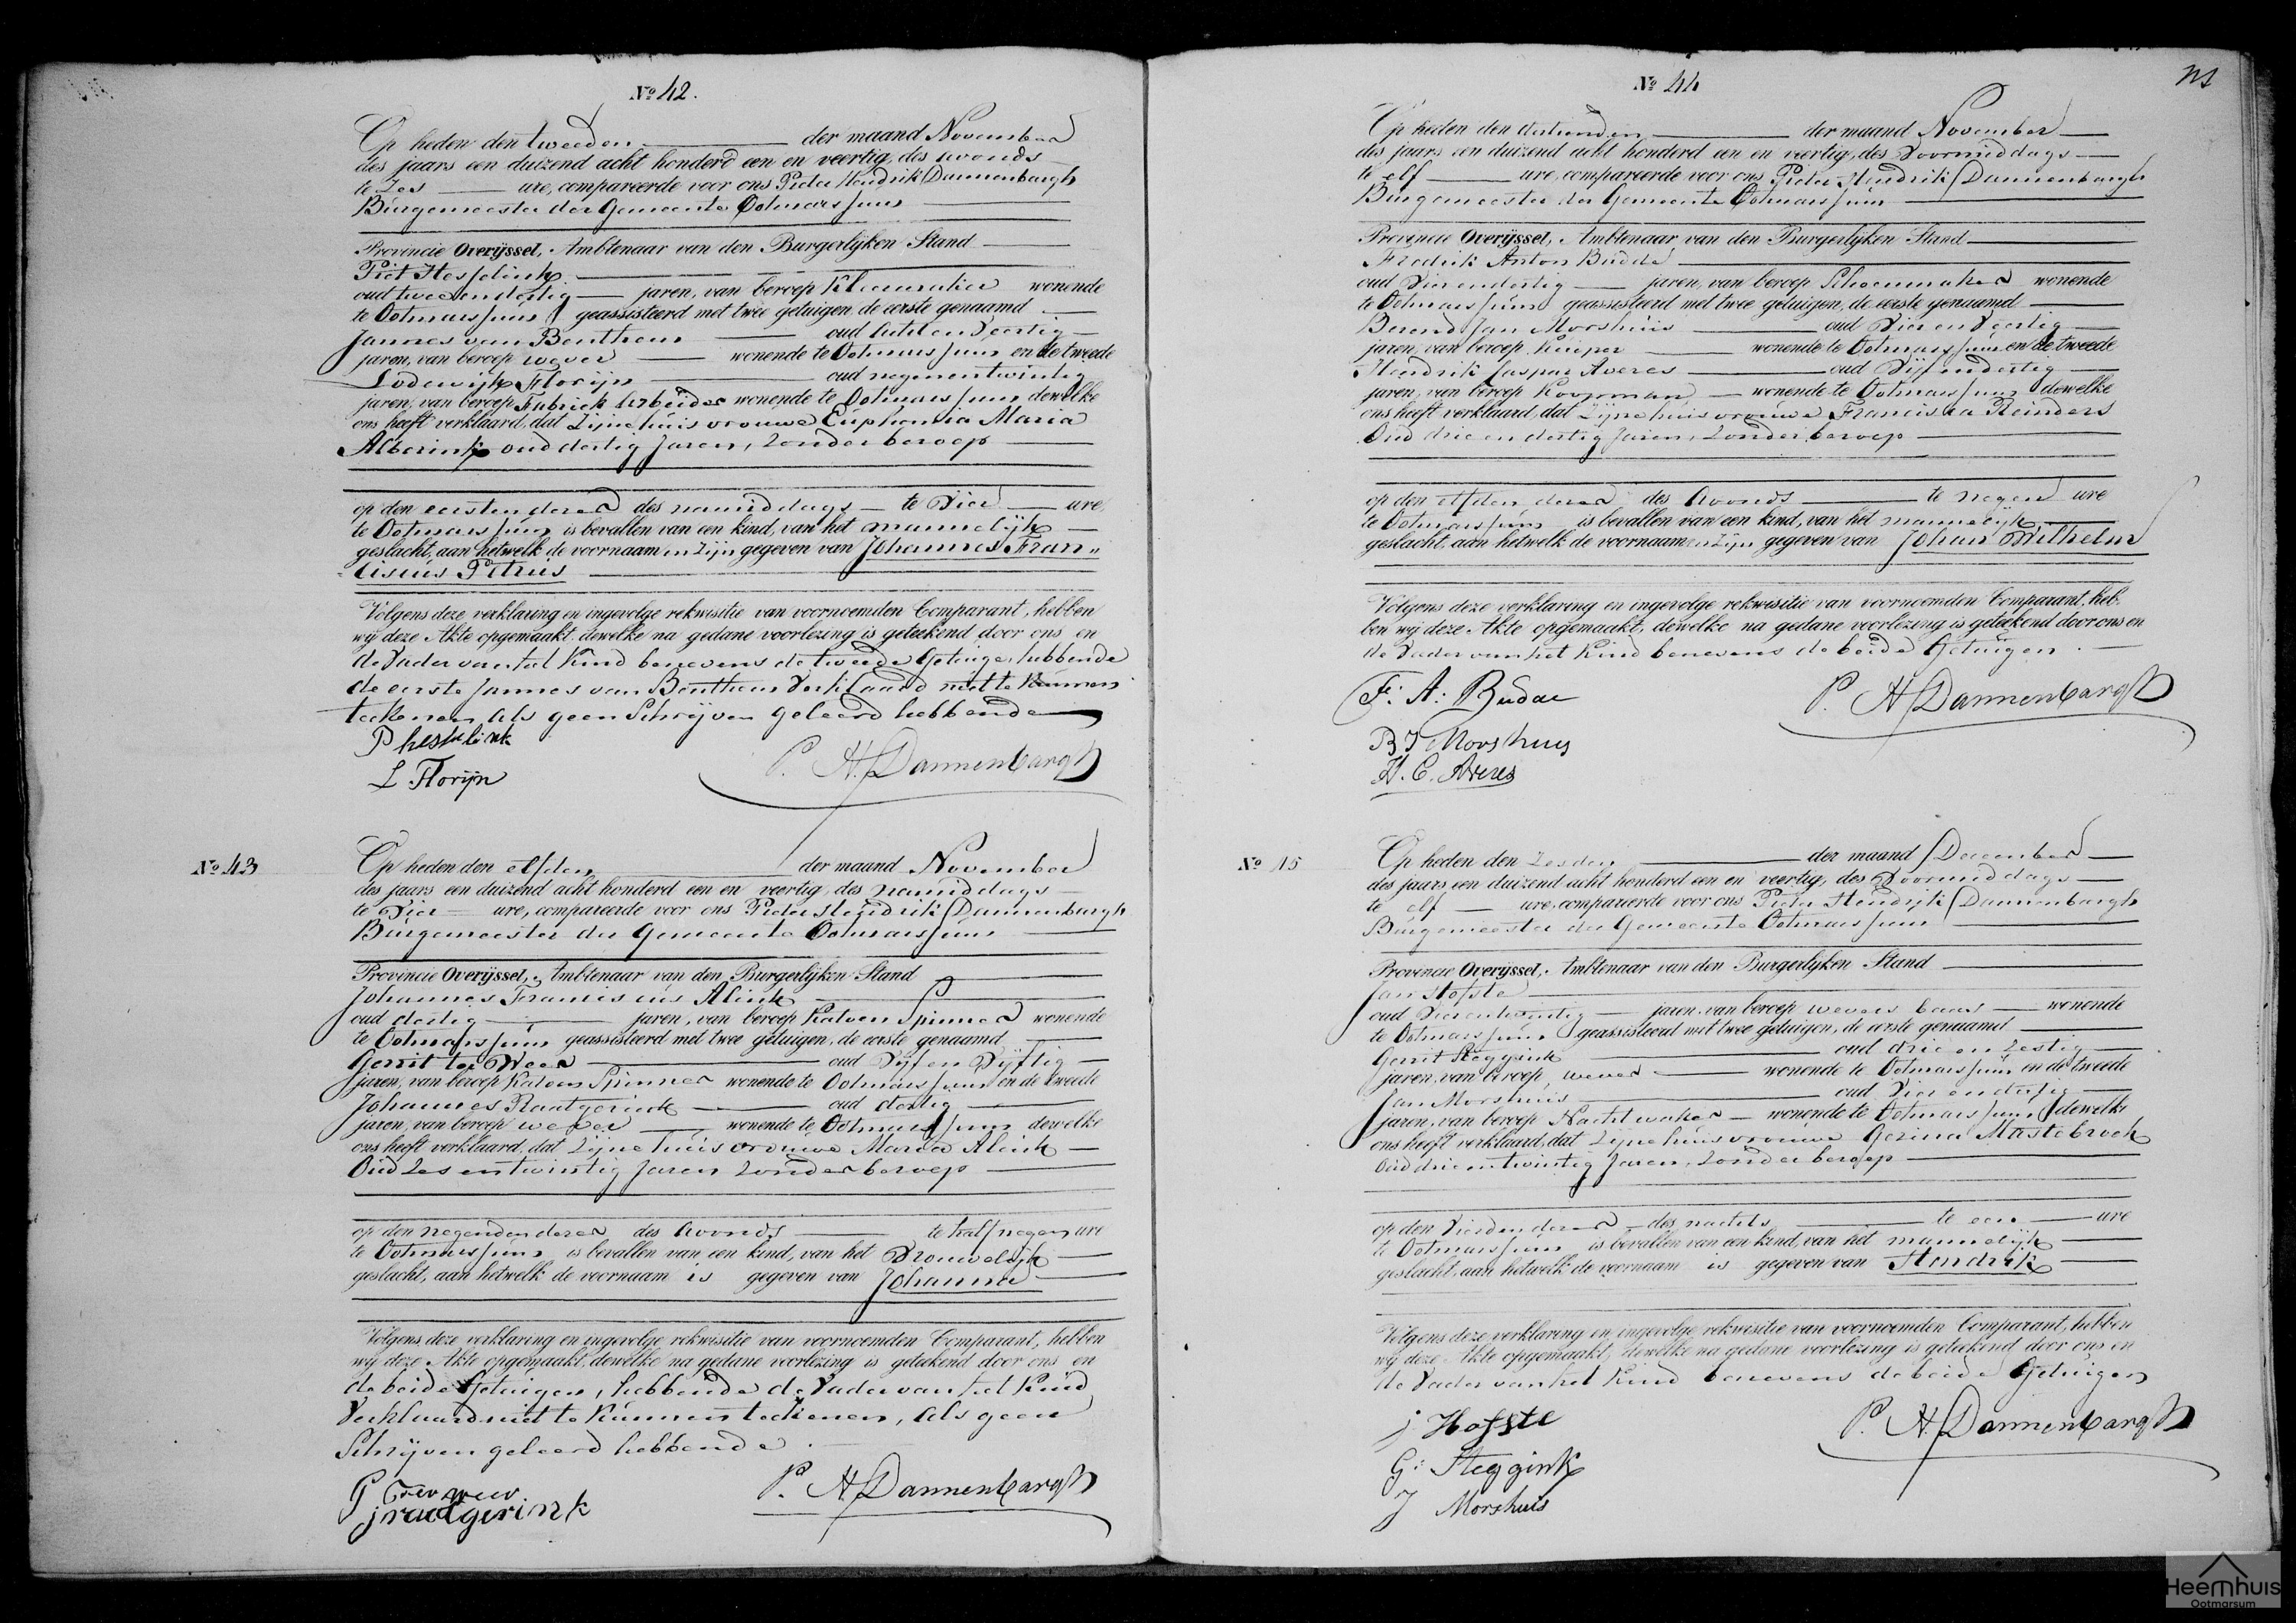 No 42.
Op heden den tweeden der maand November
des jaars een duizend acht honderd een en veertig, des avonds
te Zes ure, compareerde voor ons Pieter Hendrik Dannenbargh
Burgemeester der Gemeente Ootmarssum
Provincie Overijssel, Ambtenaar van den Burgerlijken Stand
Piet Hesselink
oud twee en dertig jaren, van beroep Kleermaker wonende
te Ootmarssum geassisteerd met twee getuigen, de eerste genaamd
Jannes van Benthem oud acht en Veertig
jaren, van beroep wever wonende te Ootmarssum en de tweede
Lodewijk Florijn oud negenentwintig
jaren, van beroep Fabriek arbeider wonende te Ootmarssum dewelke
ons heeft verklaard, dat Zijne huisvrouwe Euphemia Maria
Alberink oud dertig Jaren, Zonder beroep
op den eersten dezer des namiddags te Vier ure
te Ootmarssum is bevallen van een kind, van het mannelijk
geslacht, aan hetwelk de voornaamen Zijn gegeven van Johannes Fran„
ciscus Petrus
Volgens deze verklaring en ingevolge rekwisitie van voornoemden Comparant, hebben
wij deze Akte opgemaakt, dewelke na gedane voorlezing is geteekend door ons en
de Vader van het Kind benevens de tweede Getuige, hebbende
de eerste Jannes van Benthem Verklaard niet te Kunnen
teekenen als geen Schrijven geleerd hebbende
P hesselink
L Florijn
P. H. Dannenbargh
No 43
Op heden den elfden der maand November
des jaars een duizend acht honderd een en veertig, des namiddags
te Vier ure, compareerde voor ons Pieter Hendrik Dannenbargh
Burgemeester der Gemeente Ootmarssum
Provincie Overijssel, Ambtenaar van den Burgerlijken Stand
Johannes Franciscus Alink
oud dertig jaren, van beroep Katoen Spinner wonende
te Ootmarssum geassisteerd met twee getuigen, de eerste genaamd
Gerrit ter Weer oud Vijf en Vijftig
jaren, van beroep Katoen Spinner wonende te Ootmarssum en de tweede
Johannes Raatgerink oud dertig
jaren, van beroep wever wonende te Ootmarssum dewelke
ons heeft verklaard, dat Zijne huisvrouwe Maria Alink
Oud Zes en twintig Jaren Zonder beroep
op den negenden dezer des avonds te half negen ure
te Ootmarssum is bevallen van een kind, van het Vrouwelijk
geslacht, aan hetwelk de voornaam is gegeven van Johanna
Volgens deze verklaring en ingevolge rekwisitie van voornoemden Comparant, hebben
wij deze Akte opgemaakt, dewelke na gedane voorlezing is geteekend door ons en
de beide Getuigen, hebbende de Vader van het Kind
Verklaard niet te Kunnen teekenen, als geen
Schrijven geleerd hebbende
G Ter weer
j raatgerink
P. H. Dannenbargh
No 44
Op heden den dertienden der maand November
des jaars een duizend acht honderd een en veertig, des Voormiddags
te elf ure, compareerde voor ons Pieter Hendrik Dannenbargh
Burgemeester der Gemeente Ootmarssum
Provincie Overijssel, Ambtenaar van den Burgerlijken Stand
Fredrik Anton Budde
oud Vier en dertig jaren, van beroep Schoenmaker wonende
te Ootmarssum geassisteerd met twee getuigen, de eerste genaamd
Berend Jan Morshuis oud Vier en Veertig
jaren, van beroep Kuiper wonende te Ootmarssum en de tweede
Hendrik Caspar Averes oud Vijf en dertig
jaren, van beroep Koopman wonende te Ootmarssum dewelke
ons heeft verklaard, dat Zijne huisvrouwe Francisca Reinders
Oud drie en dertig Jaren, Zonder beroep
op den elfden dezer des Avonds te negen ure
te Ootmarssum is bevallen van een kind, van het mannelijk
geslacht, aan hetwelk de voornaamen Zijn gegeven van Johan Wilhelm
Volgens deze verklaring en ingevolge rekwisitie van voornoemden Comparant, heb-
ben wij deze Akte opgemaakt, dewelke na gedane voorlezing is geteekend door ons en
de Vader van het Kind benevens de beide Getuigen.
F: A: Budde
B J Morshuis
H. C. Averes
P. H. Dannenbargh
No 45
Op heden den Zesden der maand December
des jaars een duizend acht honderd een en veertig, des Voormiddags
te elf ure, compareerde voor ons Pieter Hendrijk Dannenbargh
Burgemeester der Gemeente Ootmarssum
Provincie Overijssel, Ambtenaar van den Burgerlijken Stand
Jan Hofste
oud Vier en twintig jaren, van beroep wevers baas wonende
te Ootmarssum geassisteerd met twee getuigen, de eerste genaamd
Gerrit Steggink oud drie en Zestig
jaren, van beroep wever wonende te Ootmarssum en de tweede
Jan Morshuis oud Vier en dertig
jaren, van beroep Nachtwaker wonende te Ootmarssum dewelke
ons heeft verklaard, dat Zijne huisvrouwe Gezina Mastebroek
Oud drie en twintig Jaren, Zonder beroep
op den Vierden dezer des nachts te een ure
te Ootmarssum is bevallen van een kind, van het mannelijk
geslacht, aan hetwelk de voornaam is gegeven van Hendrik
Volgens deze verklaring en ingevolge rekwisitie van voornoemden Comparant, hebben
wij deze Akte opgemaakt, dewelke na gedane voorlezing is geteekend door ons en
de Vader van het Kind benevens de beide Getuigen
j Hofste
G: Steggink
J Morshuis
P. H. Dannenbargh
Heemhuis
Ootmarsum